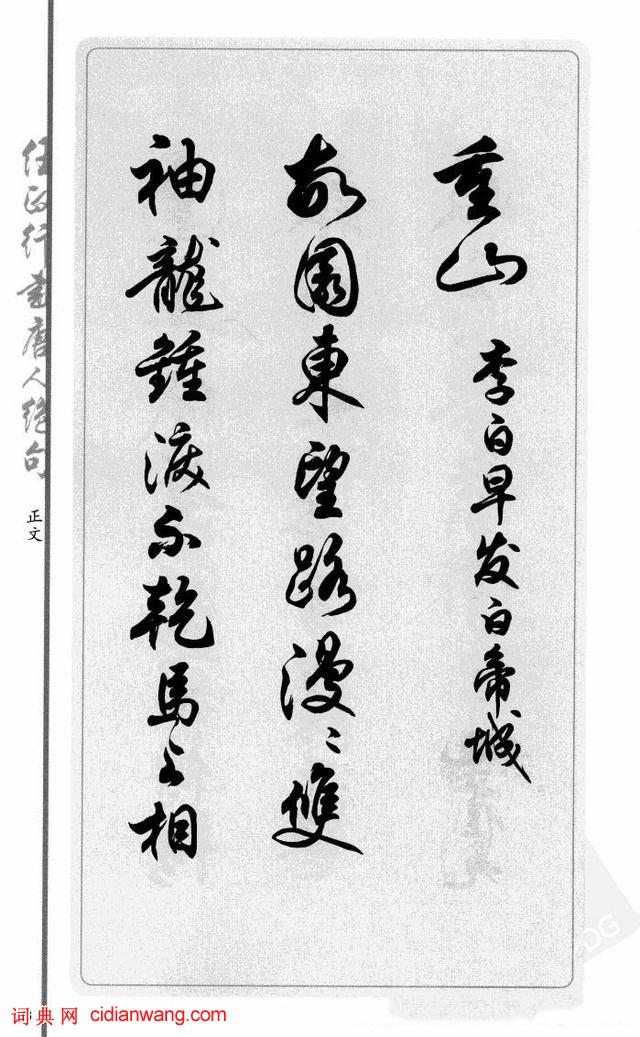 重山 李白早发白帝城
故園東望路漫〻雙
袖龍鍾淚不乾馬上相
任政行書唐人绝句
正文
词典网 cidianwang.com